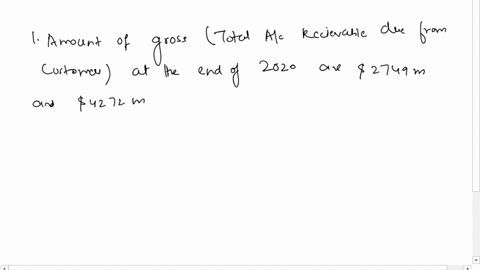 1. Amount of gross (Total A/c Recievable due from
Customer) at the end of 2020 are $2749m
and $4272m